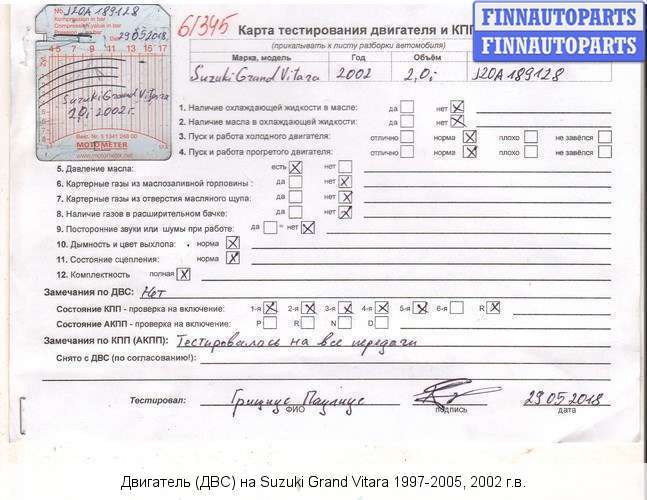 No. J20A 189128
Kompression in bar
Compression value in bar
29.05.2018
4 5 7 9 11 13 15 17
Suzuki Grand Vitara
2,0i 2002г.
MOTOMETER
www.motometer.net
61345
Карта тестирования двигателя и КПП
(прикалывать к листу разборки автомобиля)
FINNAUTOPARTS
FINNAUTOPARTS
Марка, модель Год Объём
Suzuki Grand Vitara 2002 2,0i J20A 189128
1. Наличие охлаждающей жидкости в масле: да нет X
2. Наличие масла в охлаждающей жидкости: да нет X
3. Пуск и работа холодного двигателя: отлично норма X плохо не завёлся
4. Пуск и работа прогретого двигателя: отлично норма X плохо не завёлся
5. Давление масла: есть X нет
6. Картерные газы из маслозаливной горловины : да нет X
7. Картерные газы из отверстия масляного щупа: да нет X
8. Наличие газов в расширительном бачке: да нет X
9. Посторонние звуки или шумы при работе: да нет X
10. Дымность и цвет выхлопа: норма X
11. Состояние сцепления: норма X
12. Комплектность полная X
Замечания по ДВС: Нет
Состояние КПП - проверка на включение: 1-я X 2-я X 3-я X 4-я X 5-я X 6-я R X
Состояние АКПП - проверка на включение: P R N D
Замечания по КПП (АКПП): Тестировалась на все передачи
Снято с ДВС (по согласованию!):
Тестировал: Грицюс Паулюс 29.05.2018
ФИО подпись дата
Двигатель (ДВС) на Suzuki Grand Vitara 1997-2005, 2002 г.в.